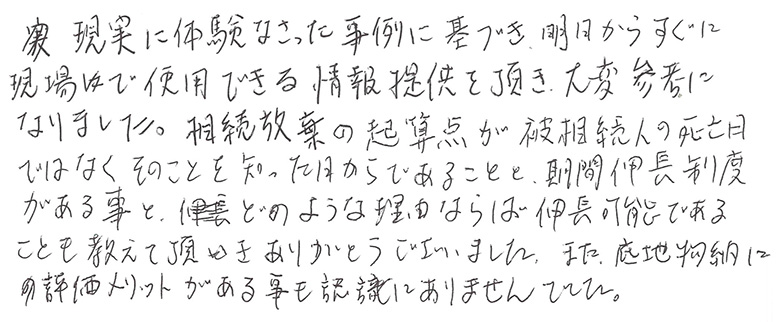 現実に体験なさった事例に基づき、明日からすぐに
現場で使用できる情報提供を頂き、大変参考に
なりました。相続放棄の起算点が被相続人の死亡日
ではなくそのことを知った日からであることと、期間伸長制度
がある事と、どのような理由ならば伸長可能である
ことも教えて頂いきありがとうございました。また、底地物納に
の評価メリットがある事も認識にありませんでした。